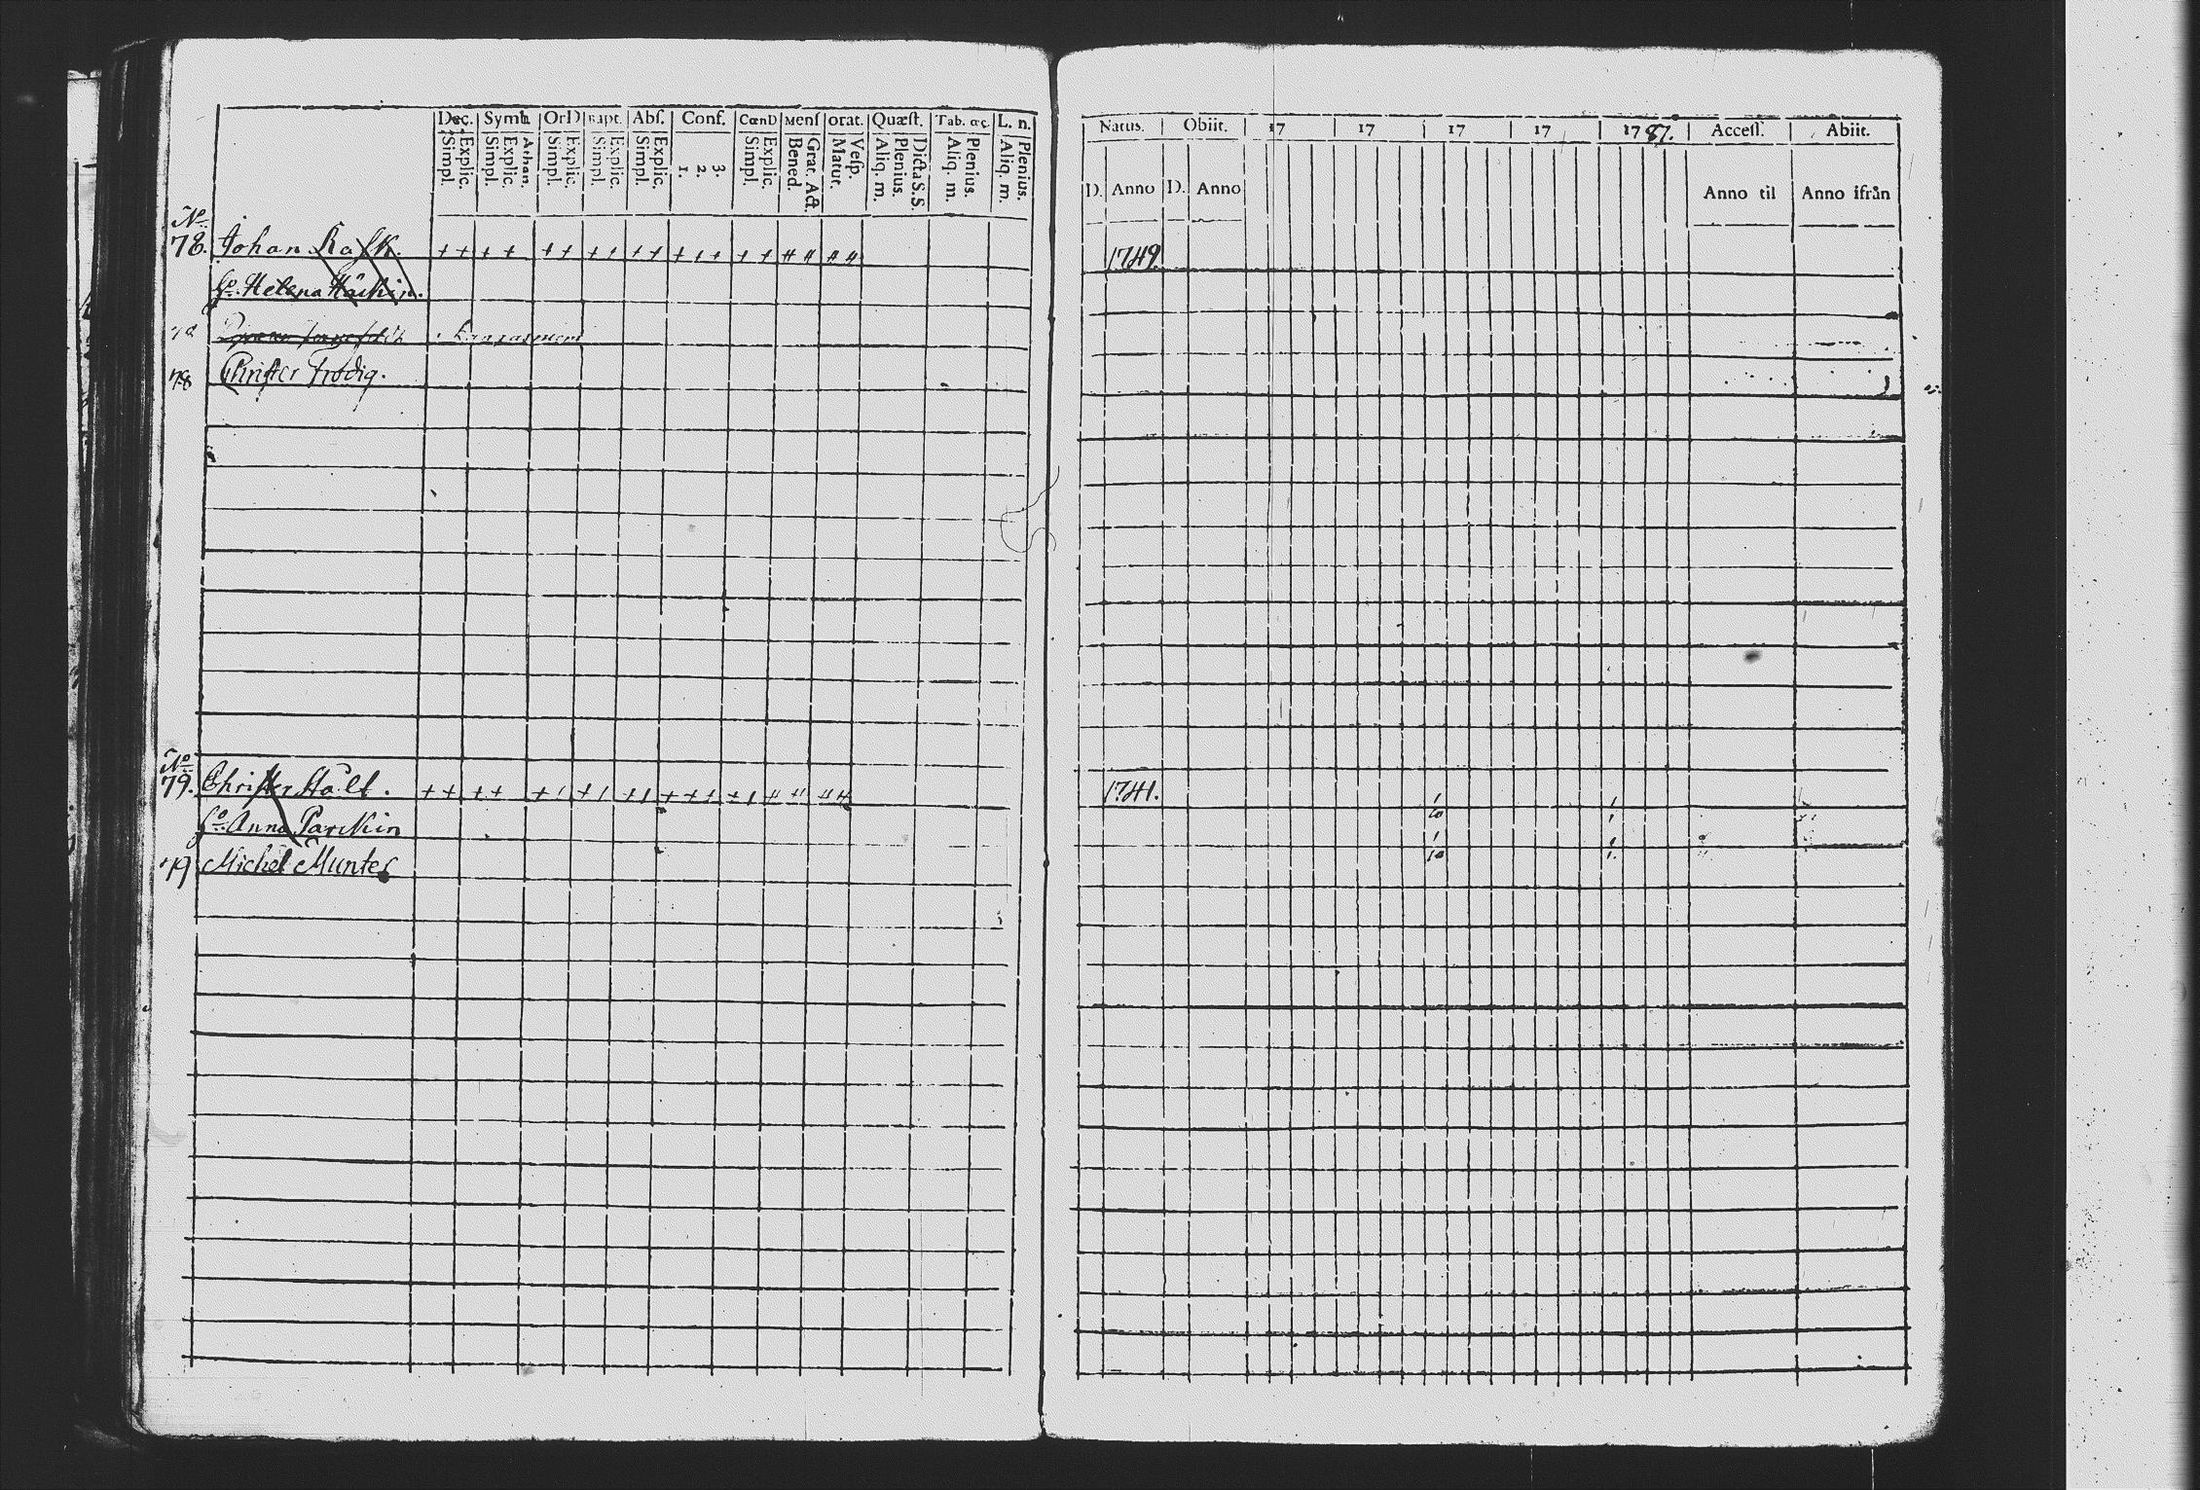 Dec. Symb. OrD Bapt. Abſ. Conf. CœnD Menſ orat. Quæſt. Tab. œc. L. n.
Simpl. Explic. Simpl. Explic. Athan. Simpl. Explic. Simpl. Explic. Simpl. Explic. 1. 2. 3. Simpl. Explic. Bened. Grat. Act. Matut. Veſp. Aliq. m. Plenius. Dicta S.S. Aliq. m. Plenius. Aliq. m. Plenius.
No:
78. Johan Rask. ++ ++ ++ ++ ++ +++ ++ # # # #
h:o Helena
78
78 Christer Frodig.
No:
79. Christer Stålt. ++ ++ ++ ++ ++ +++ ++ # # # #
h:o Anna Parikin
79 Michel Munter
Natus. Obiit. 17 17 17 17 1787. Acceſſ. Abiit.
D. Anno D. Anno Anno til Anno ifrån
1749.
1741. 1/10 1/1
1/10 1/1.